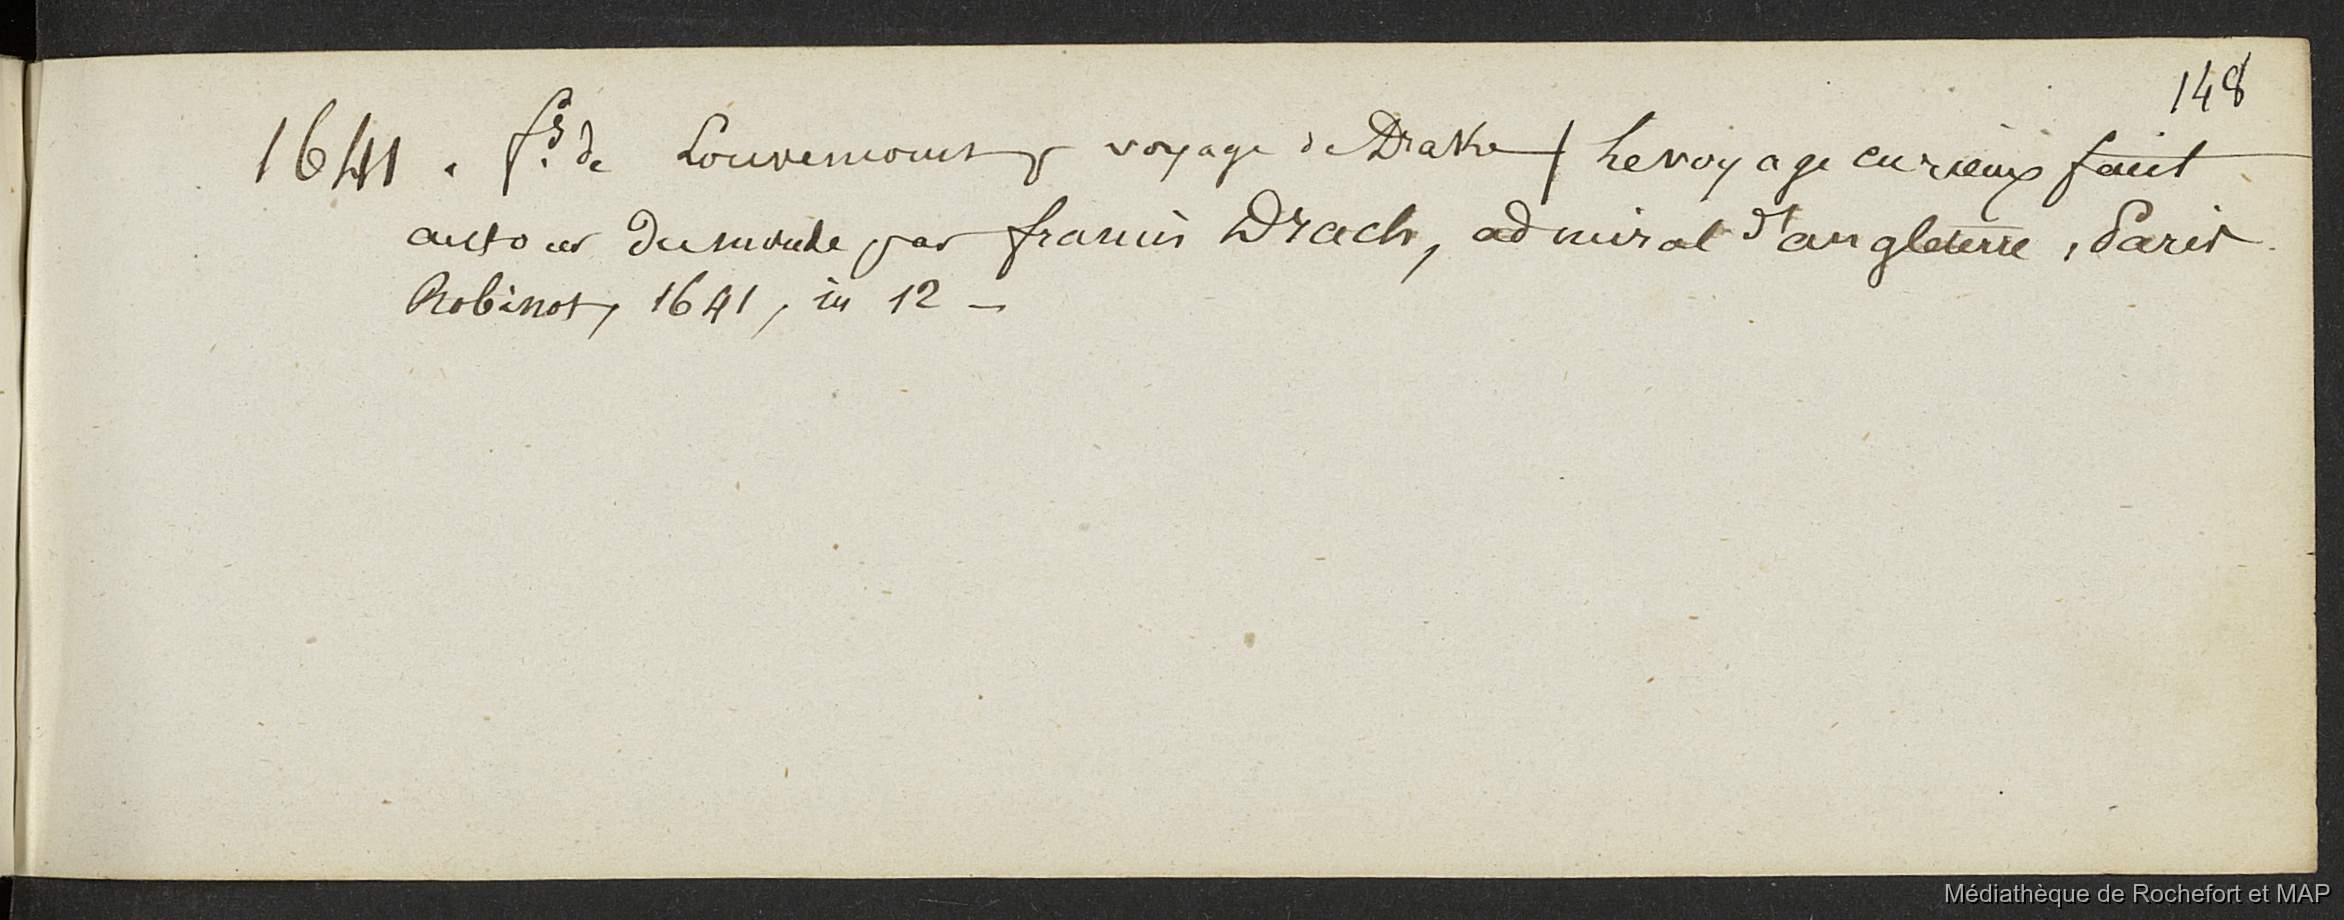 148
1641. fs. de Louvemont voyage de Drake / Le voyage curieux faict
autour du monde par francis Drach, admiral d'angleterre, Paris
Robinot, 1641, in 12 —
Médiathèque de Rochefort et MAP